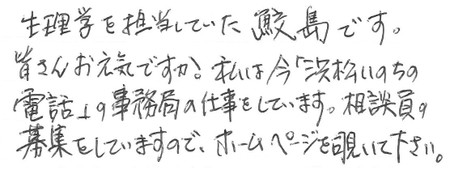 生理学を担当していた鮫島です。
皆さんお元気ですか。私は今「浜松いのちの
電話」の事務局の仕事をしています。相談員の
募集をしていますので、ホームページを覗いて下さい。